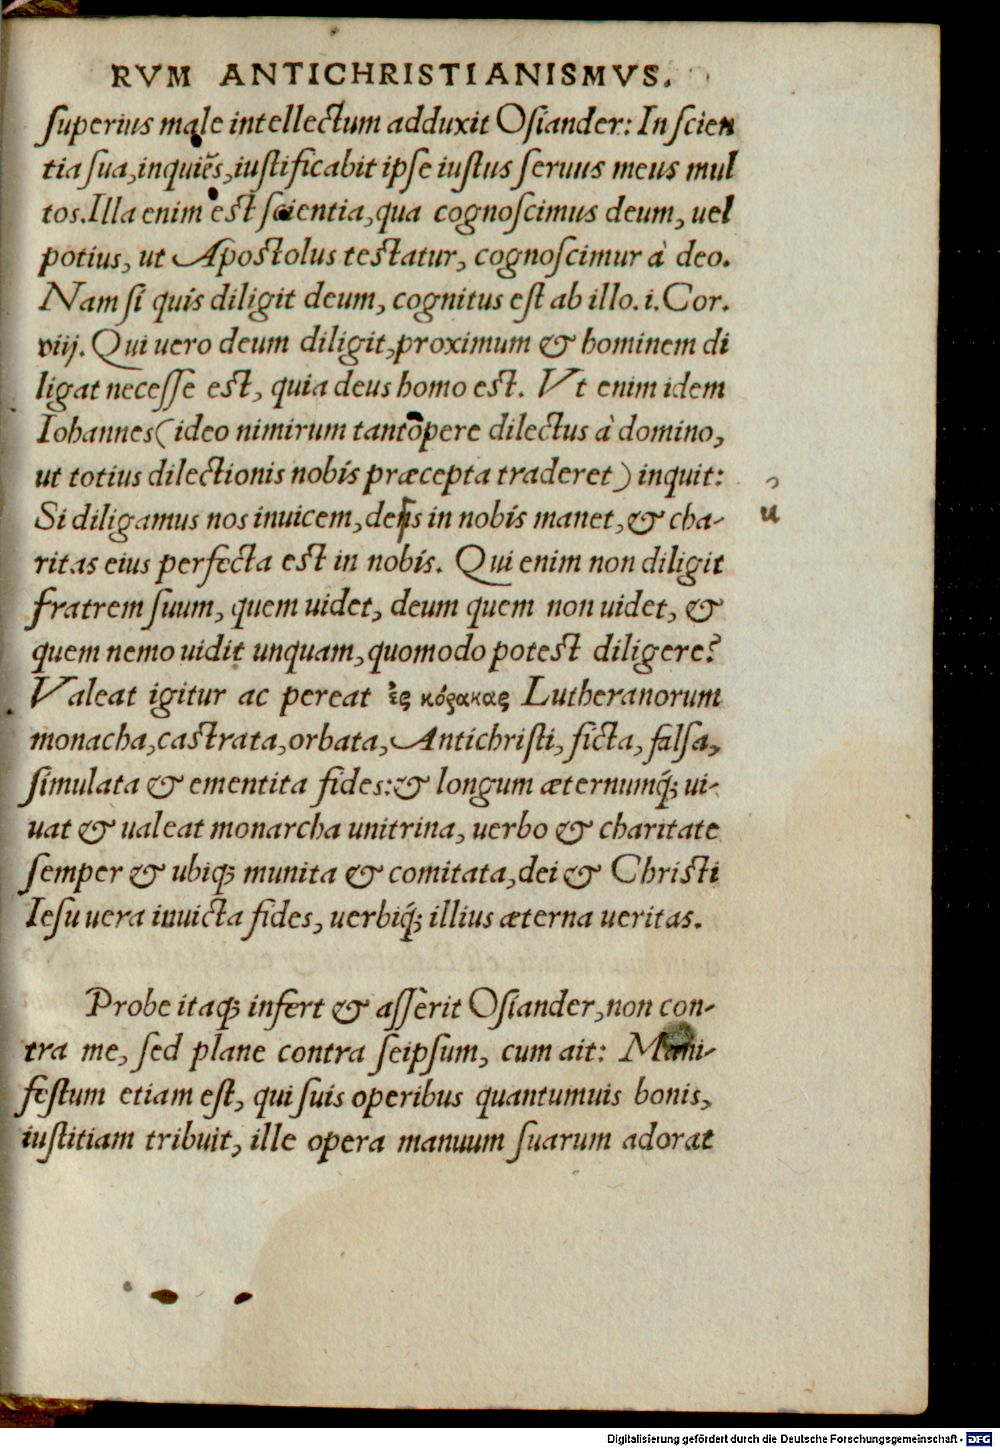 RVM ANTICHRISTIANISMVS.
ſuperius male intellectum adduxit Oſiander: In ſcien
tia ſua, inquiẽs, iuſtificabit ipſe iuſtus ſeruus meus mul
tos. Illa enim eſt ſcientia, qua cognoſcimus deum, uel
potius, ut Apoſtolus teſtatur, cognoſcimur à deo.
Nam ſi quis diligit deum, cognitus eſt ab illo. i. Cor.
viij. Qui uero deum diligit, proximum & hominem di
ligat neceſſe eſt, quia deus homo eſt. Vt enim idem
Iohannes (ideo nimirum tantopere dilectus à domino,
ut totius dilectionis nobis præcepta traderet) inquit:
Si diligamus nos inuicem, deus in nobis manet, & cha-
ritas eius perfecta eſt in nobis. Qui enim non diligit
fratrem ſuum, quem uidet, deum quem non uidet, &
quem nemo uidit unquam, quomodo poteſt diligere?
Valeat igitur ac pereat ἐς κόρακας Lutheranorum
monacha, caſtrata, orbata, Antichriſti, ficta, falſa,
ſimulata & ementita fides: & longum æternumq́; ui-
uat & ualeat monarcha unitrina, uerbo & charitate
ſemper & ubiq; munita & comitata, dei & Chriſti
Ieſu uera inuicta fides, uerbiq́; illius æterna ueritas.
Probe itaq; infert & aſſerit Oſiander, non con-
tra me, ſed plane contra ſeipſum, cum ait: Mani-
feſtum etiam eſt, qui ſuis operibus quantumuis bonis,
iuſtitiam tribuit, ille opera manuum ſuarum adorat
u
Digitalisierung gefördert durch die Deutsche Forschungsgemeinschaft - DFG